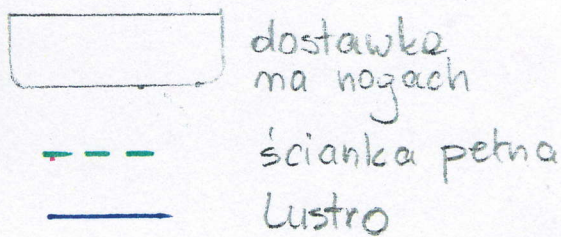 dostawka
na nogach
ścianka pełna
Lustro